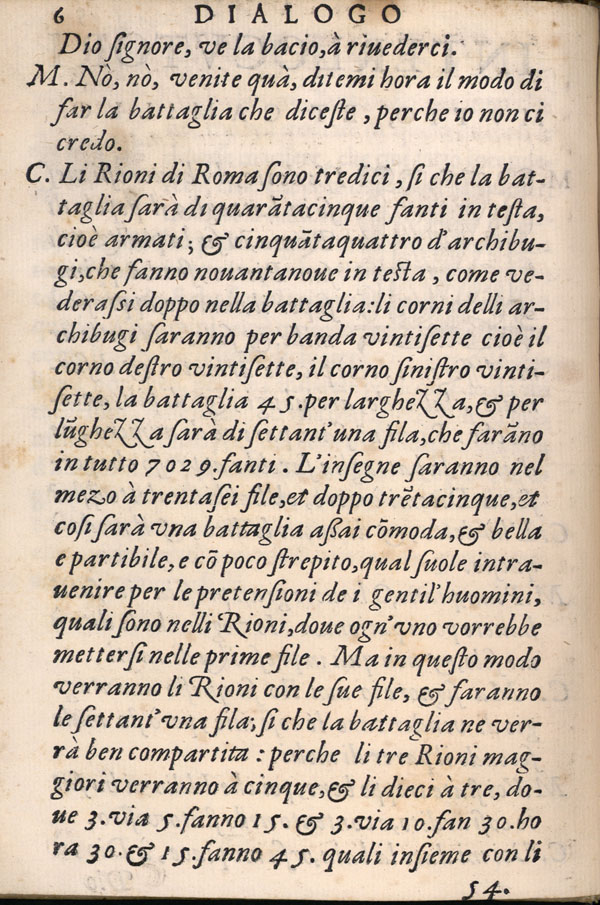 6 DIALOGO
Dio ſignore, ve la bacio, à riuederci.
M. Nò, nò, venite quà, ditemi hora il modo di
far la battaglia che diceſte, perche io non ci
credo.
C. Li Rioni di Roma ſono tredici, ſi che la bat-
taglia ſarà di quarãtacinque fanti in teſta,
cioè armati; & cinquãtaquattro d'archibu-
gi, che fanno nouantanoue in teſta, come ve-
deraſsi doppo nella battaglia: li corni delli ar-
chibugi ſaranno per banda vintiſette cioè il
corno deſtro vintiſette, il corno ſiniſtro vinti-
ſette, la battaglia 45. per larghezza, & per
lũghezza ſarà di ſettant'una fila, che farãno
in tutto 7029. fanti. L'inſegne ſaranno nel
mezo à trentaſei file, et doppo trẽtacinque, et
coſi ſarà vna battaglia aßai cõmoda, & bella
e partibile, e cõ poco ſtrepito, qual ſuole intra-
uenire per le pretenſioni de i gentil'huomini,
quali ſono nelli Rioni, doue ogn'vno vorrebbe
metterſi nelle prime file. Ma in queſto modo
verranno li Rioni con le ſue file, & faranno
le ſettant'vna fila; ſi che la battaglia ne ver-
rà ben compartita: perche li tre Rioni mag-
giori verranno à cinque, & li dieci à tre, do-
ue 3. via 5. fanno 15. & 3. via 10. fan 30. ho
ra 30. & 15. fanno 45. quali inſieme con li
54.